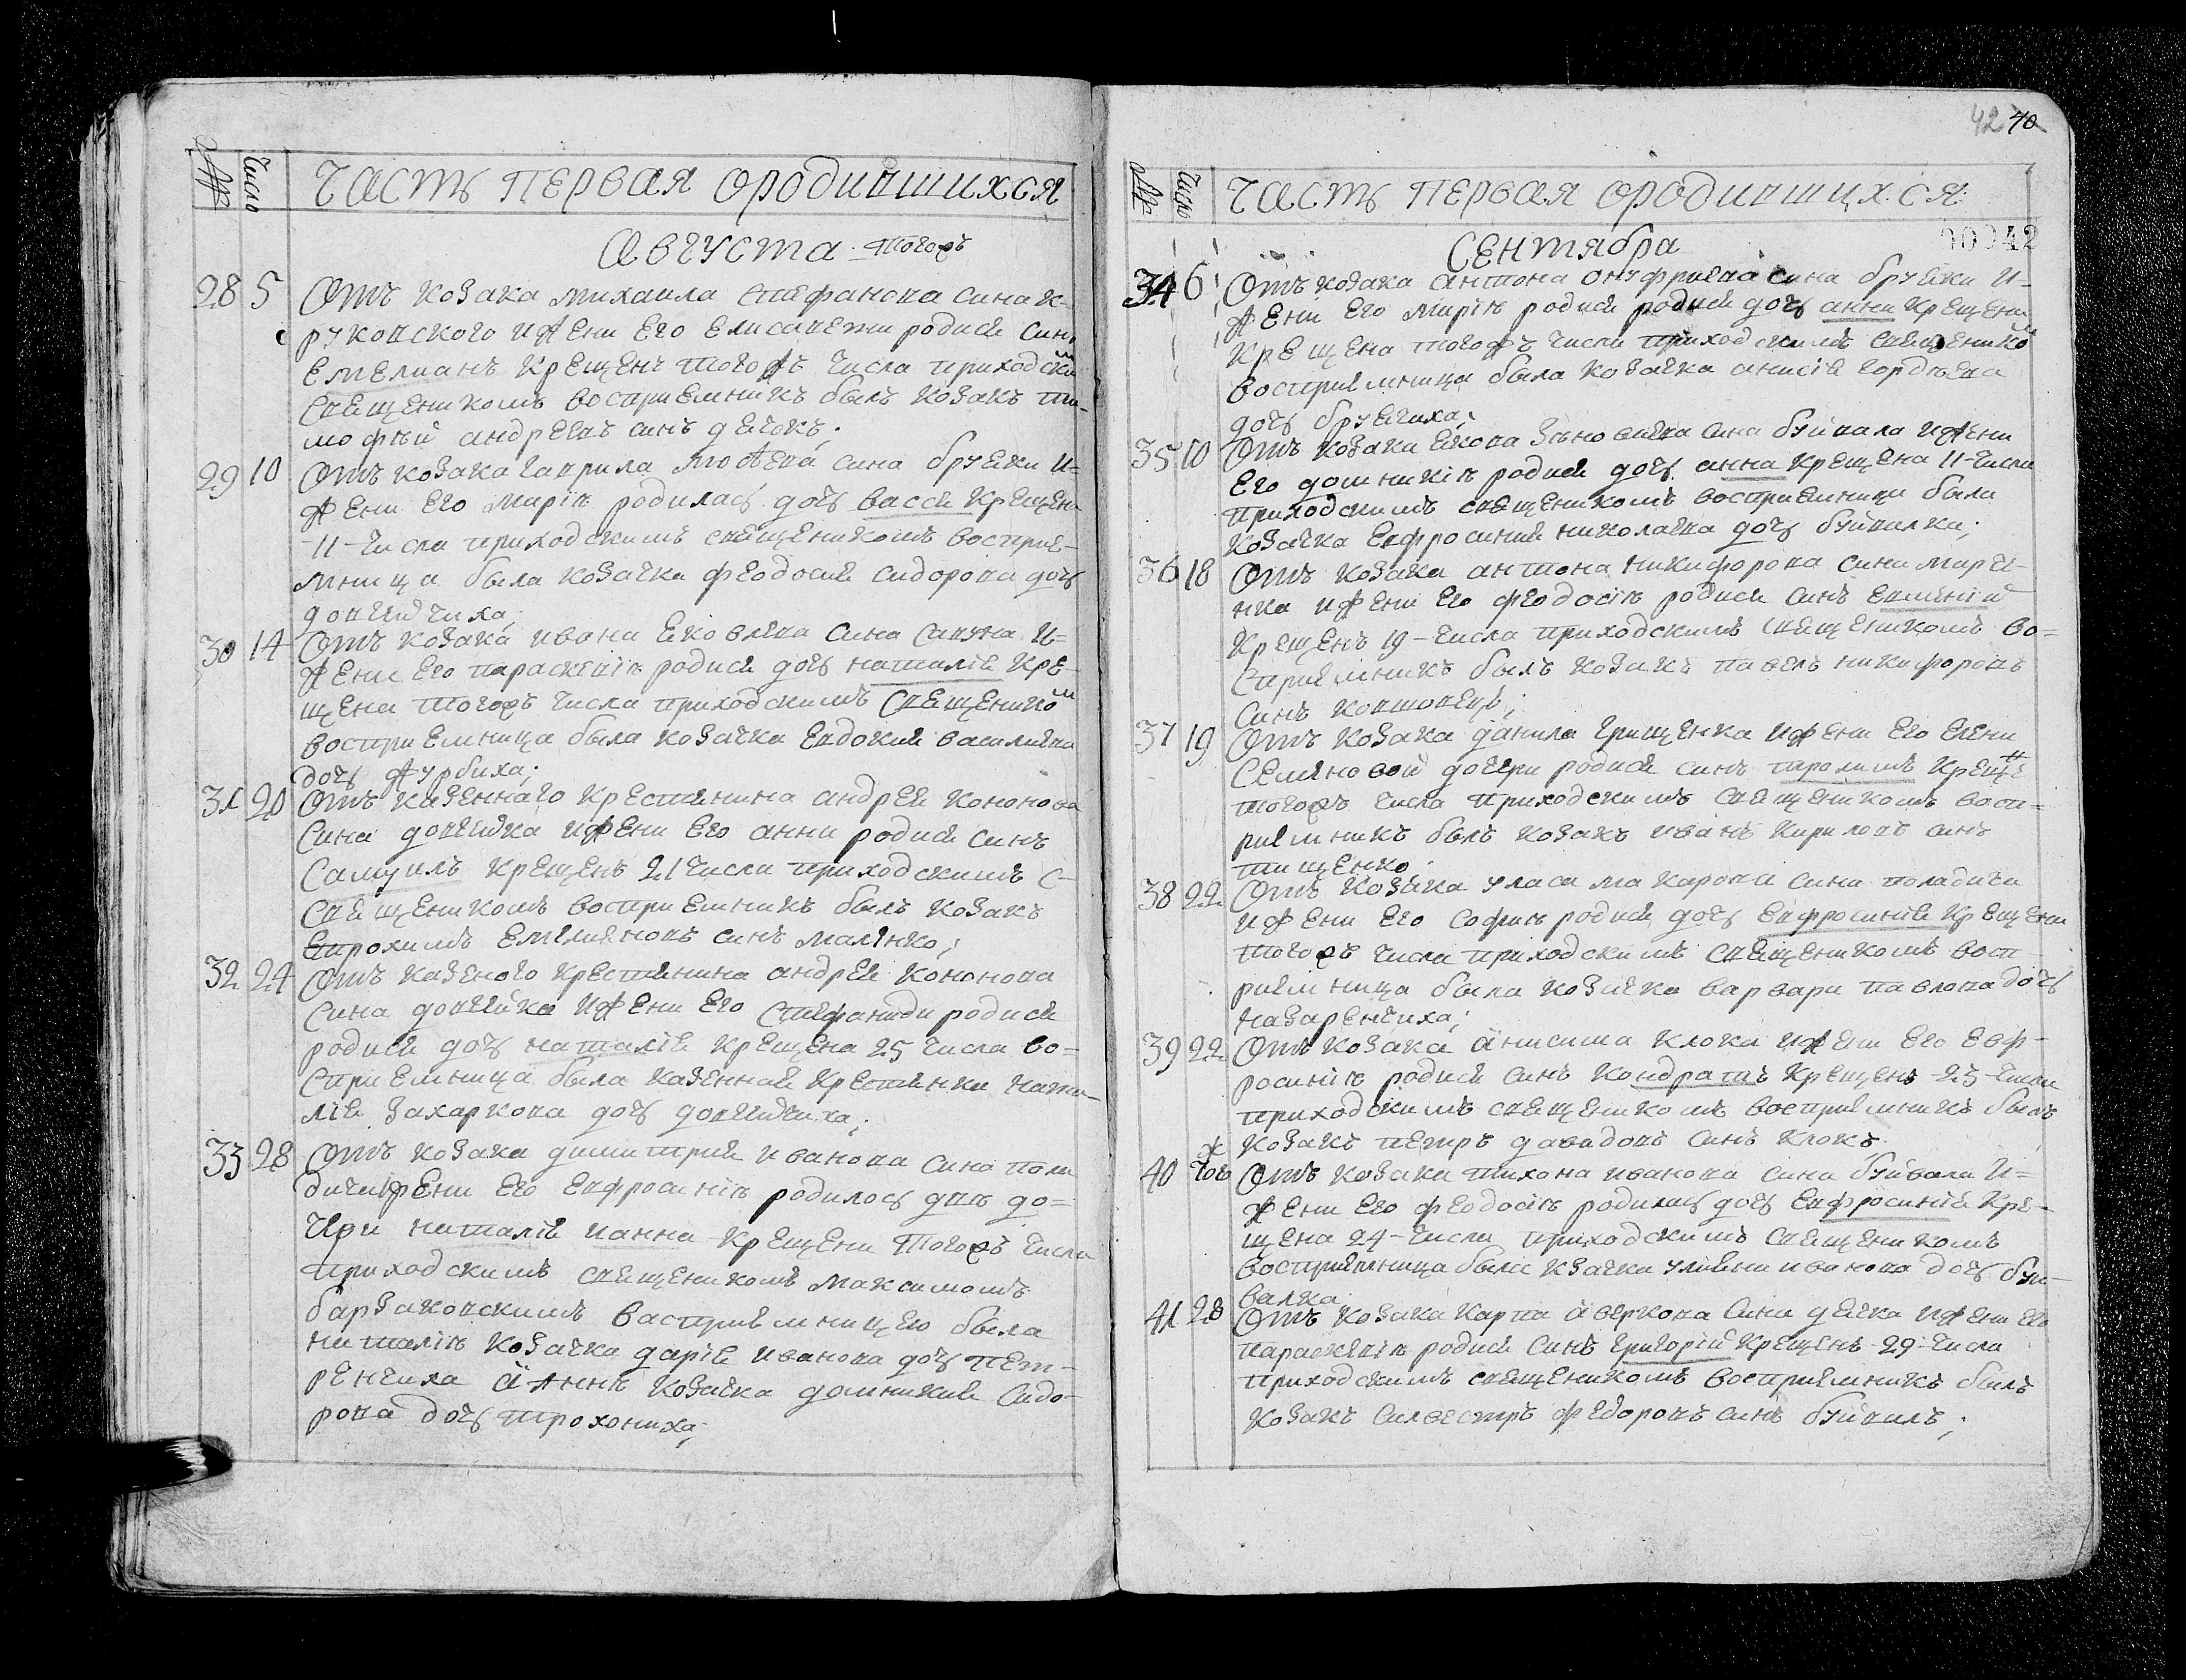 №
Число
Часть первая ородившихся
Августа тогожъ
28 5 Отъ козака михаила стефанова сина к-
руковского ижени Его Елисаветы родися синъ
Емелианъ крещенъ тогожъ числа приходски м
священикомъ восприемникъ былъ козакъ ти-
мофей андреевъ синъ дейчкъ;
29 10 Отъ козака гаврила сина бружки и=
жени Его Маріи родиласъ дочъ васса крещена
11-числа приходскимъ священикомъ восприе-
мница была козачка феодосия сидорова дочъ
довгидчиха;
30 14 Отъ козака ивана Яковлева сина сапуна и=
жени Его параскевіи родися дочъ наталія кре-
щена тогожъ числа приходскимъ священико м
восприемница была козачка Евдокия василиева
дочъ журбиха;
31 20 Отъ казеннаго крестянина андрея кононова
сина ижени Его анни родися синъ
Самуилъ крещенъ 21 числа приходскимъ с-
священикомъ восприемникъ былъ козакъ
трохимъ Емелияновъ синъ маленко;
32 24 Отъ казеного крестянина андрея кононова
сина ижени Его Стефаниди родися
родися дочъ наталія крещена 25 числа во=
сприемница была казенная крестянка ната-
лія захаркова дочъ довгидчиха;
33 28 Отъ козака димитрия иванова сина пола
дичаижени Его Евфросиніи родилосъ две до=
чери наталія ианна крещени тогожъ числа
приходскимъ священикомъ максимомъ
барзаковскимъ васприемницею была
наталіи козачка дарія иванова дочъ пет-
ренчиха а анне козачка домникия сидо-
рова дочъ трохониха;
42 40
№
Число
Часть первая ородившихся
00042
Сентября
34 6 Отъ козака антона онуфриева сина бружки и-
жени Его маріи родися родися дочъ анна крещени
крещена тогожъ числа приходскимъ священико м
восприемница была козачка анисія гордеева
дочъ
35 10 Отъ козака Якова зеновиева сина буйвала ижени
Его домникіи родися дочъ анна крещена 11-числа
приходскимъ священикомъ восприемница была
козачка Евфросиния николаева дочъ буйвалка;
36 18 Отъ козака антона никифорова сина марче-
нка ижени Его феодосіи родися синъ Евменій
крещенъ 19-числа приходскимъ священикомъ во=
сприемникъ былъ козакъ павелъ никифоровъ
синъ ковтовецъ;
37 19 Отъ козака данила грищенка ижени Его Елени
Семеновой дочери родися синъ крещен
тогожъ числа приходскимъ священикомъ восп=
риемникъ былъ козакъ иванъ кириловъ синъ
тищенко;
38 22 Отъ козака уласа макарова сина поладича
ижени Его Софии родися дочъ Евфросинія крещени
тогожъ числа приходскимъ священикомъ восп
риемница была козачка варвара павлова дочъ
назаренчиха;
39 22 Отъ козака анисима клока ижени Его Евф-
росиніи родися синъ кондратъ крещенъ 23-числа
приходскимъ священикомъ восприемникъ былъ
козакъ петръ давидовъ синъ клокъ
40 тогож Отъ козака тихона иванова сина буйвала и=
жени Его феодосіи родиласъ дочъ Евфросинія кре-
щена 24-числа приходскимъ священикомъ
восприемница была казачка улияна иванова дочъ буи-
валка
41 28 Отъ козака карпа аверкова сина дейчка ижени его
параскевіи родися синъ григорій крещенъ 29-числа
приходскимъ священикомъ восприемникъ былъ
козакъ силвестръ федоровъ синъ буйвалъ;